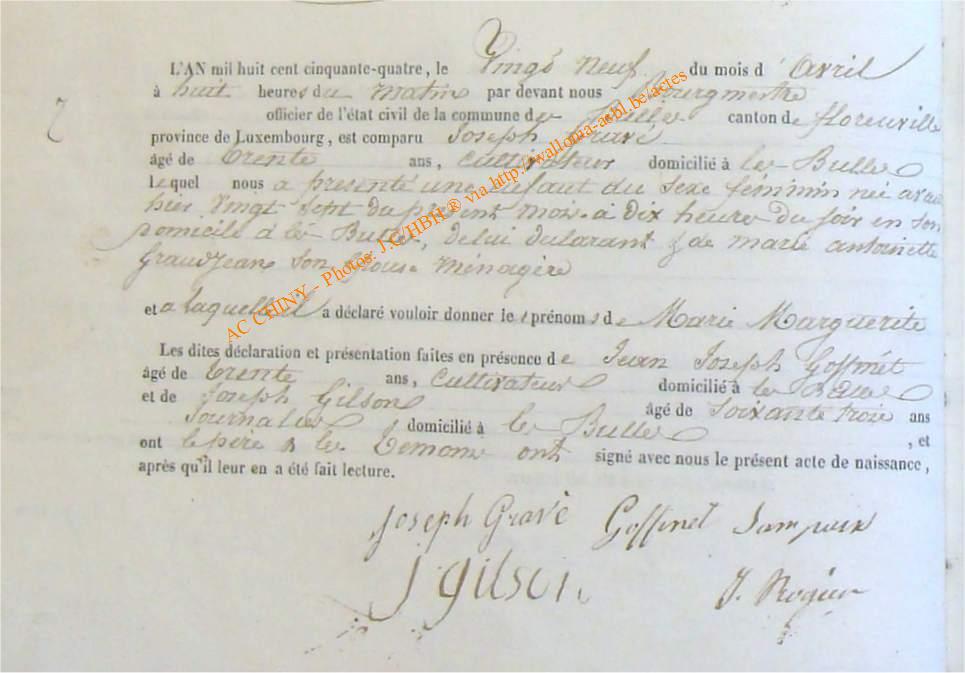 7
L'AN mil huit cent cinquante-quatre, le Vingt neuf du mois d' Avril
à huit heures du matin par devant nous Bourgmestre
officier de l'état civil de la commune de Bulles canton de florenville
province de Luxembourg, est comparu Joseph Gravé
âgé de trente ans, Cultivateur domicilié à les Bulles
lequel nous a présenté une Enfant du sexe féminin née avan
hier Vingt Sept du présent mois à Dix heures du soir en son
domicile à les Bulles, de lui déclarant & de marie antoinette
Grandjean son Epouse Ménagère
et a laquelle il a déclaré vouloir donner les prénoms de Marie Marguerite
Les dites déclaration et présentation faites en présence de Jean Joseph Goffinet
âgé de trente ans, Cultivateur domicilié à les Bulles
et de Joseph Gilson âgé de Soixante trois ans
Journalier domicilié à les Bulles , et
ont le père & les témoins ont signé avec nous le présent acte de naissance,
après qu'il leur en a été fait lecture.
Joseph Gravé Goffinet
J Gilson J. Rogier
AC CHINY - Photos: J.C/HBH ® via http://wallonia-asbl.be/actes